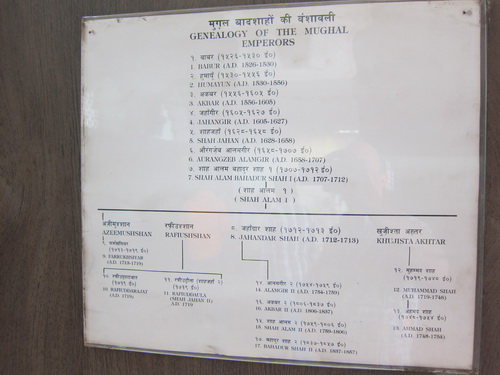 मुग़ल बादशाहों की वंशावली
GENEALOGY OF THE MUGHAL
EMPERORS
१. बाबर (१५२६-१५३० ई०)
1. BABUR (A.D. 1526-1530)
२. हुमायूँ (१५३०-१५५६ ई०)
2. HUMAYUN (A.D. 1530-1556)
३. अकबर (१५५६-१६०५ ई०)
3. AKBAR (A.D. 1556-1605)
४. जहाँगीर (१६०५-१६२७ ई०)
4. JAHANGIR (A.D. 1605-1627)
५. शाहजहाँ (१६२८-१६५८ ई०)
5. SHAH JAHAN (A.D. 1628-1658)
६. औरंगजेब आलमगीर (१६५८-१७०७ ई०)
6. AURANGZEB ALAMGIR (A.D. 1658-1707)
७. शाह आलम बहादुर शाह १ (१७०७-१७१२ ई०)
7. SHAH ALAM BAHADUR SHAH I (A.D. 1707-1712)
( शाह आलम १ )
( SHAH ALAM I )
अजीमुश्शान
AZEEMUSHSHAN
रफीउश्शान
RAFIUSHSHAN
८. जहांदार शाह (१७१२-१७१३ ई०)
8. JAHANDAR SHAH (A.D. 1712-1713)
खुजीश्ता अख़्तर
KHUJISTA AKHTAR
९. फर्रुखसियर
(१७१३-१७१९ ई०)
9. FARRUKHSIYAR
(A.D. 1713-1719)
१०. रफीउद्दरजात
(१७१९ ई०)
10. RAFIUDDARAJAT
(A.D. 1719)
११. रफीउद्दौला (शाहजहाँ २)
(१७१९ ई०)
11. RAFIUDDAULA
(SHAH JAHAN II)
A.D. 1719
१४. आलमगीर २ (१७५४-१७५९ ई०)
14. ALAMGIR II (A.D. 1754-1759)
१६. अकबर २ (१८०६-१८३७ ई०)
16. AKBAR II (A.D. 1806-1837)
१५. शाह आलम २ (१७५९-१८०६ ई०)
15. SHAH ALAM II (A.D. 1759-1806)
१७. बहादुर शाह २ (१८३७-१८५७ ई०)
17. BAHADUR SHAH II (A.D. 1837-1857)
१२. मुहम्मद शाह
(१७१९-१७४८ ई०)
12. MUHAMMAD SHAH
(A.D. 1719-1748)
१३. अहमद शाह
(१७४८-१७५४ ई०)
13. AHMAD SHAH
(A.D. 1748-1754)